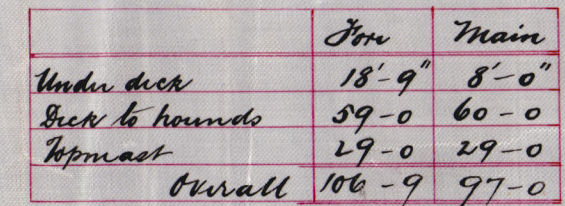 Fore Main
Under deck 18'-9" 8'-0"
Deck to hounds 59-0 60-0
Topmast 29-0 29-0
Overall 106-9 97-0